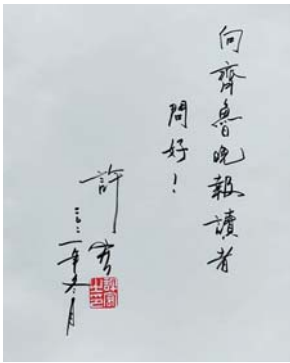 向齊魯晚報讀者
問好！
許
二〇二一年冬月